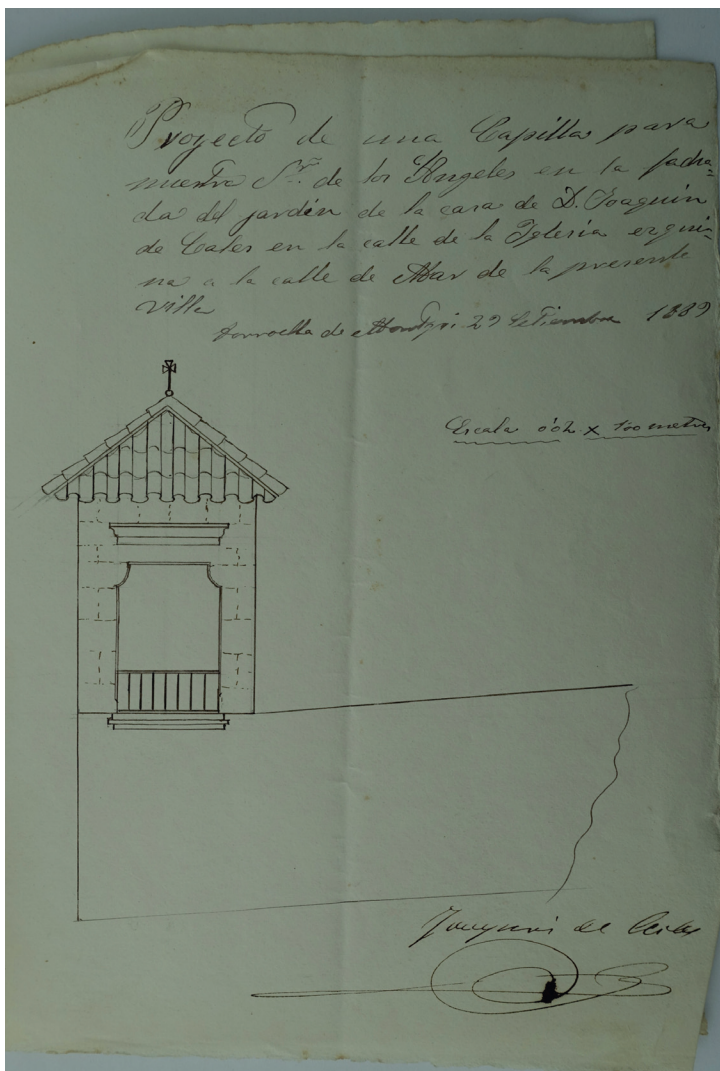 Proyecto de una Capilla para
nuestra Sra. de los Angeles en la facha=
da del jardin de la casa de D. Joaquin
de Cales en la calle de la Iglesia esqui=
na a la calle de Mar de la presente
villa
Torroella de Montgri 29 Setiembre 1889
Escala 0'02 x 1'00 metro
Joaquin de